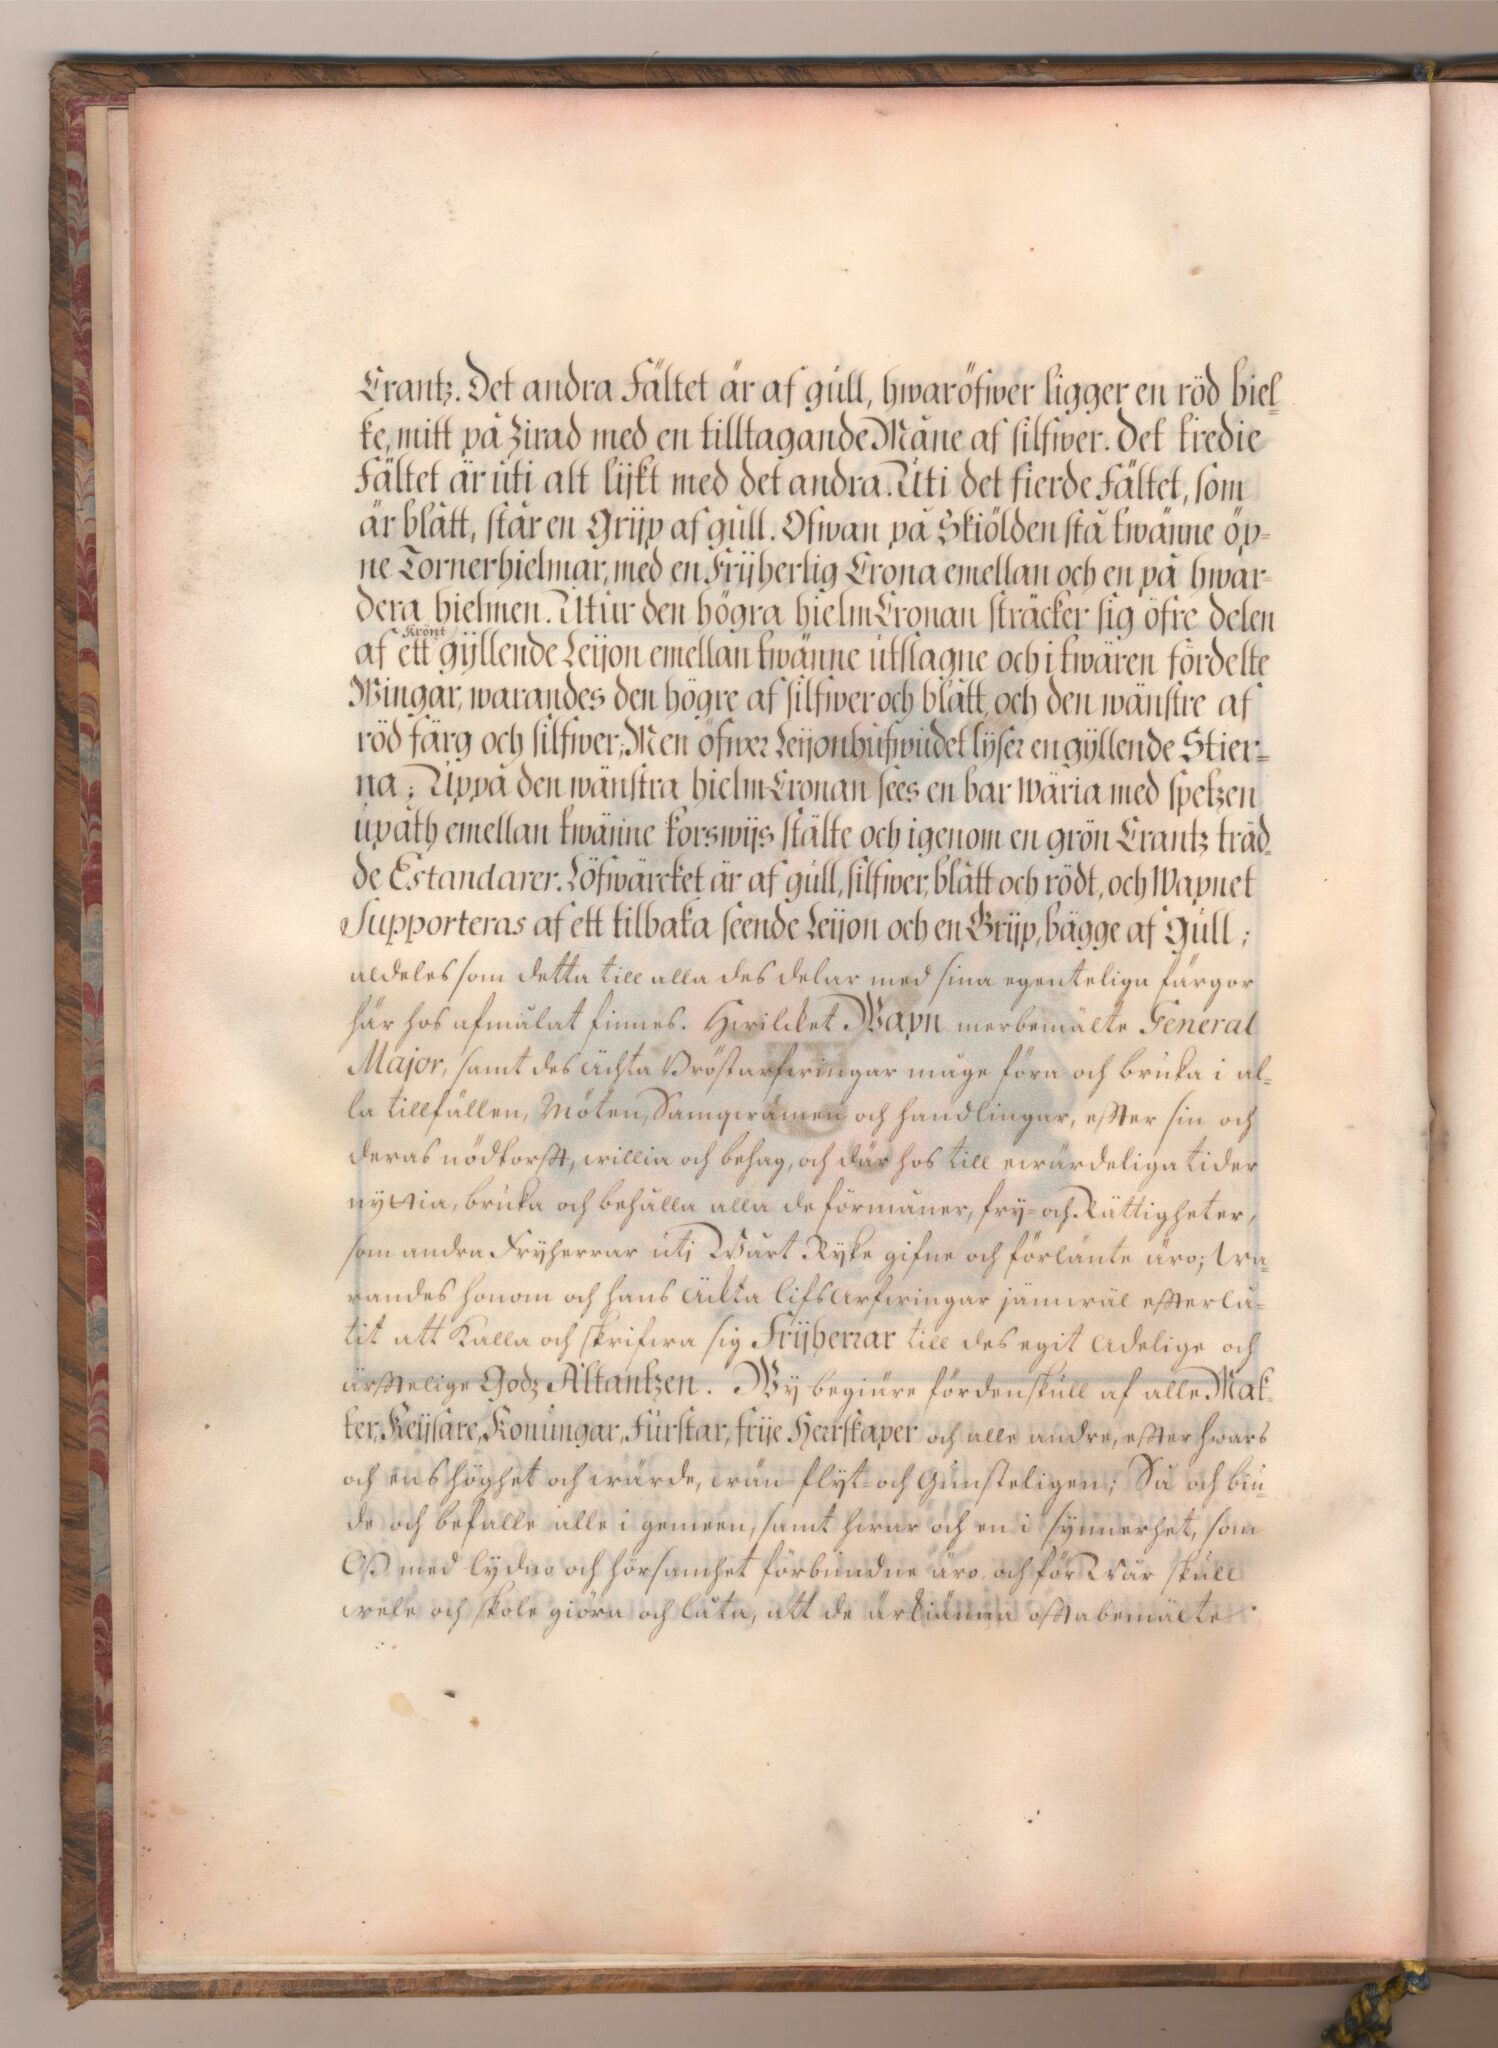 Crantz. Det andra Fältet är af gull, hwaröfwer ligger en röd biel-
ke, mitt på Zirad med en tilltagande Måne af silfwer. Det tredie
Fältet är uti alt lijkt med det andra. Uti det fierde Fältet, som
är blått, står en Grijp af gull. Ofwan på Skiölden stå twänne öp-
ne Tornerhielmar, med en Frijherlig Crona emellan och en på hwar-
dera hielmen. Utur den högra hielm Cronan sträcker sig öfre delen
af ett Krönt gyllende Leijon emellan twänne utslagne och i twären fördelte
Wingar, warandes den högre af silfwer och blått, och den wänstre af
röd färg och silfwer; Men öfwer Leijonhufwudet lyser en gyllende Stier-
na; Uppå den wänstra hielm Cronan sees en bar Wäria med spetzen
upåth emellan twänne korswijs stälte och igenom en grön Crantz träd-
de Estandarer. Löfwärcket är af gull, silfwer, blått och rödt, och Wapnet
Supporteras af ett tilbaka seende Leijon och en Grijp, bägge af Gull;
aldeles som detta till alla des delar med sina egenteliga färgor
här hos afmålat finnes. Hwilcket Wapn merbemälte General
Major, samt des ächta Bröstarfwingar måge föra och bruka i al-
la tillfällen, Möten, Samqwämen och handlingar, effter sin och
deras nödtorfft, willia och behag, och där hos till ewärdeliga tider
nyttia, bruka och behålla alla de förmåner, fry- och Rättigheter,
som andra Fryherrar uti Wårt Ryke gifne och förlänte äro; Wa-
randes honom och hans ächta lifsarfwingar jämwäl efterlå-
tit att kalla och skrifwa sig Frijherrar till des egit adelige och
ärfftelige Godz Altantzen. Wy begiäre fördenskull af alle Mak-
ter, Keijsare, Konungar, Furstar, frije Herrskaper och alle andre, effter hwars
och ens höghet och wärde, wän- flyt- och Gunsteligen; Så och biu-
de och befalle alle i gemeen, samt hwar och en i synnerhet, som
Oß med lydno och hörsamhet förbundne äro, och för Wår skull
wele och skole giöra och låta, att de ärkiänna offtabemälte